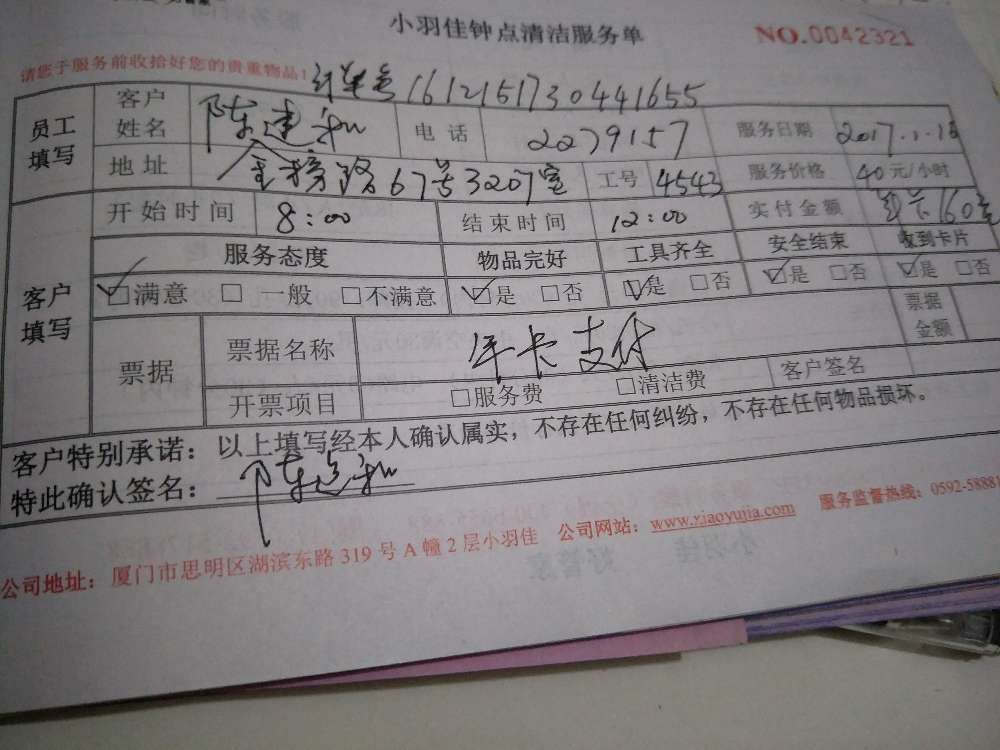 小羽佳钟点清洁服务单 NO.0042321
请您于服务前收拾好您的贵重物品! 订单号 1612151730441655
员工填写 客户姓名 陈建和 电话 2279157 服务日期 2017.1.
地址 金榜路67号3207室 工号 4543 服务价格 40元/小时
客户填写 开始时间 8:00 结束时间 12:00 实付金额 年卡160元
服务态度 物品完好 工具齐全 安全结束 收到卡片
☑满意 □一般 □不满意 ☑是 □否 ☑是 □否 ☑是 □否 ☑是 □否
票据 票据名称 年卡支付 票据金额
开票项目 □服务费 □清洁费 客户签名
客户特别承诺:以上填写经本人确认属实,不存在任何纠纷,不存在任何物品损坏。
特此确认签名: 陈建和
公司地址:厦门市思明区湖滨东路319号A幢2层小羽佳 公司网站:www.xiaoyujia.com 服务监督热线:0592-58881